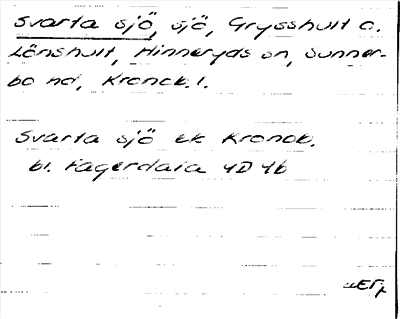 Svarta sjö, sjö, Grysshult o.
Lönshult, Hinneryds sn, Sunner-
bo hd, Kronob. l.
Svarta sjö ek Kronob.
bl. Fagerdala 4D 4b